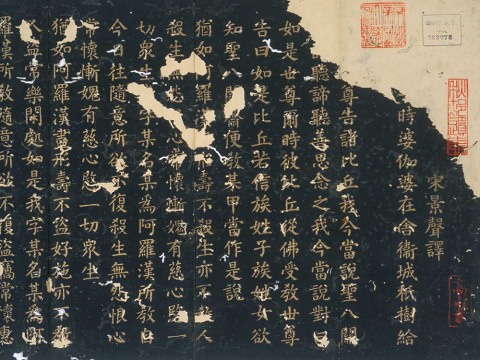 宋景聲譯
時婆伽婆在舍衛城祇樹給
尊告諸比丘我今當說聖八關
聽諦聽善思念之我今當說對曰
如是世尊爾時彼比丘從佛受教世尊
告曰如是比丘若信族姓子族姓女欲
知聖八關便教某甲當作是說
猶如阿羅壽不殺生亦不人
殺生無心懷慚愧有慈心愍一
切衆生字某名某為阿羅漢所教自
今日往隨意所不復殺生無恨心
常懷慚愧有慈心愍一切衆生
猶如阿羅漢盡形壽不盜好施亦不教
人盜常樂閑處如是我字某名某
羅漢所教隨意所欲不復盜竊常樂惠